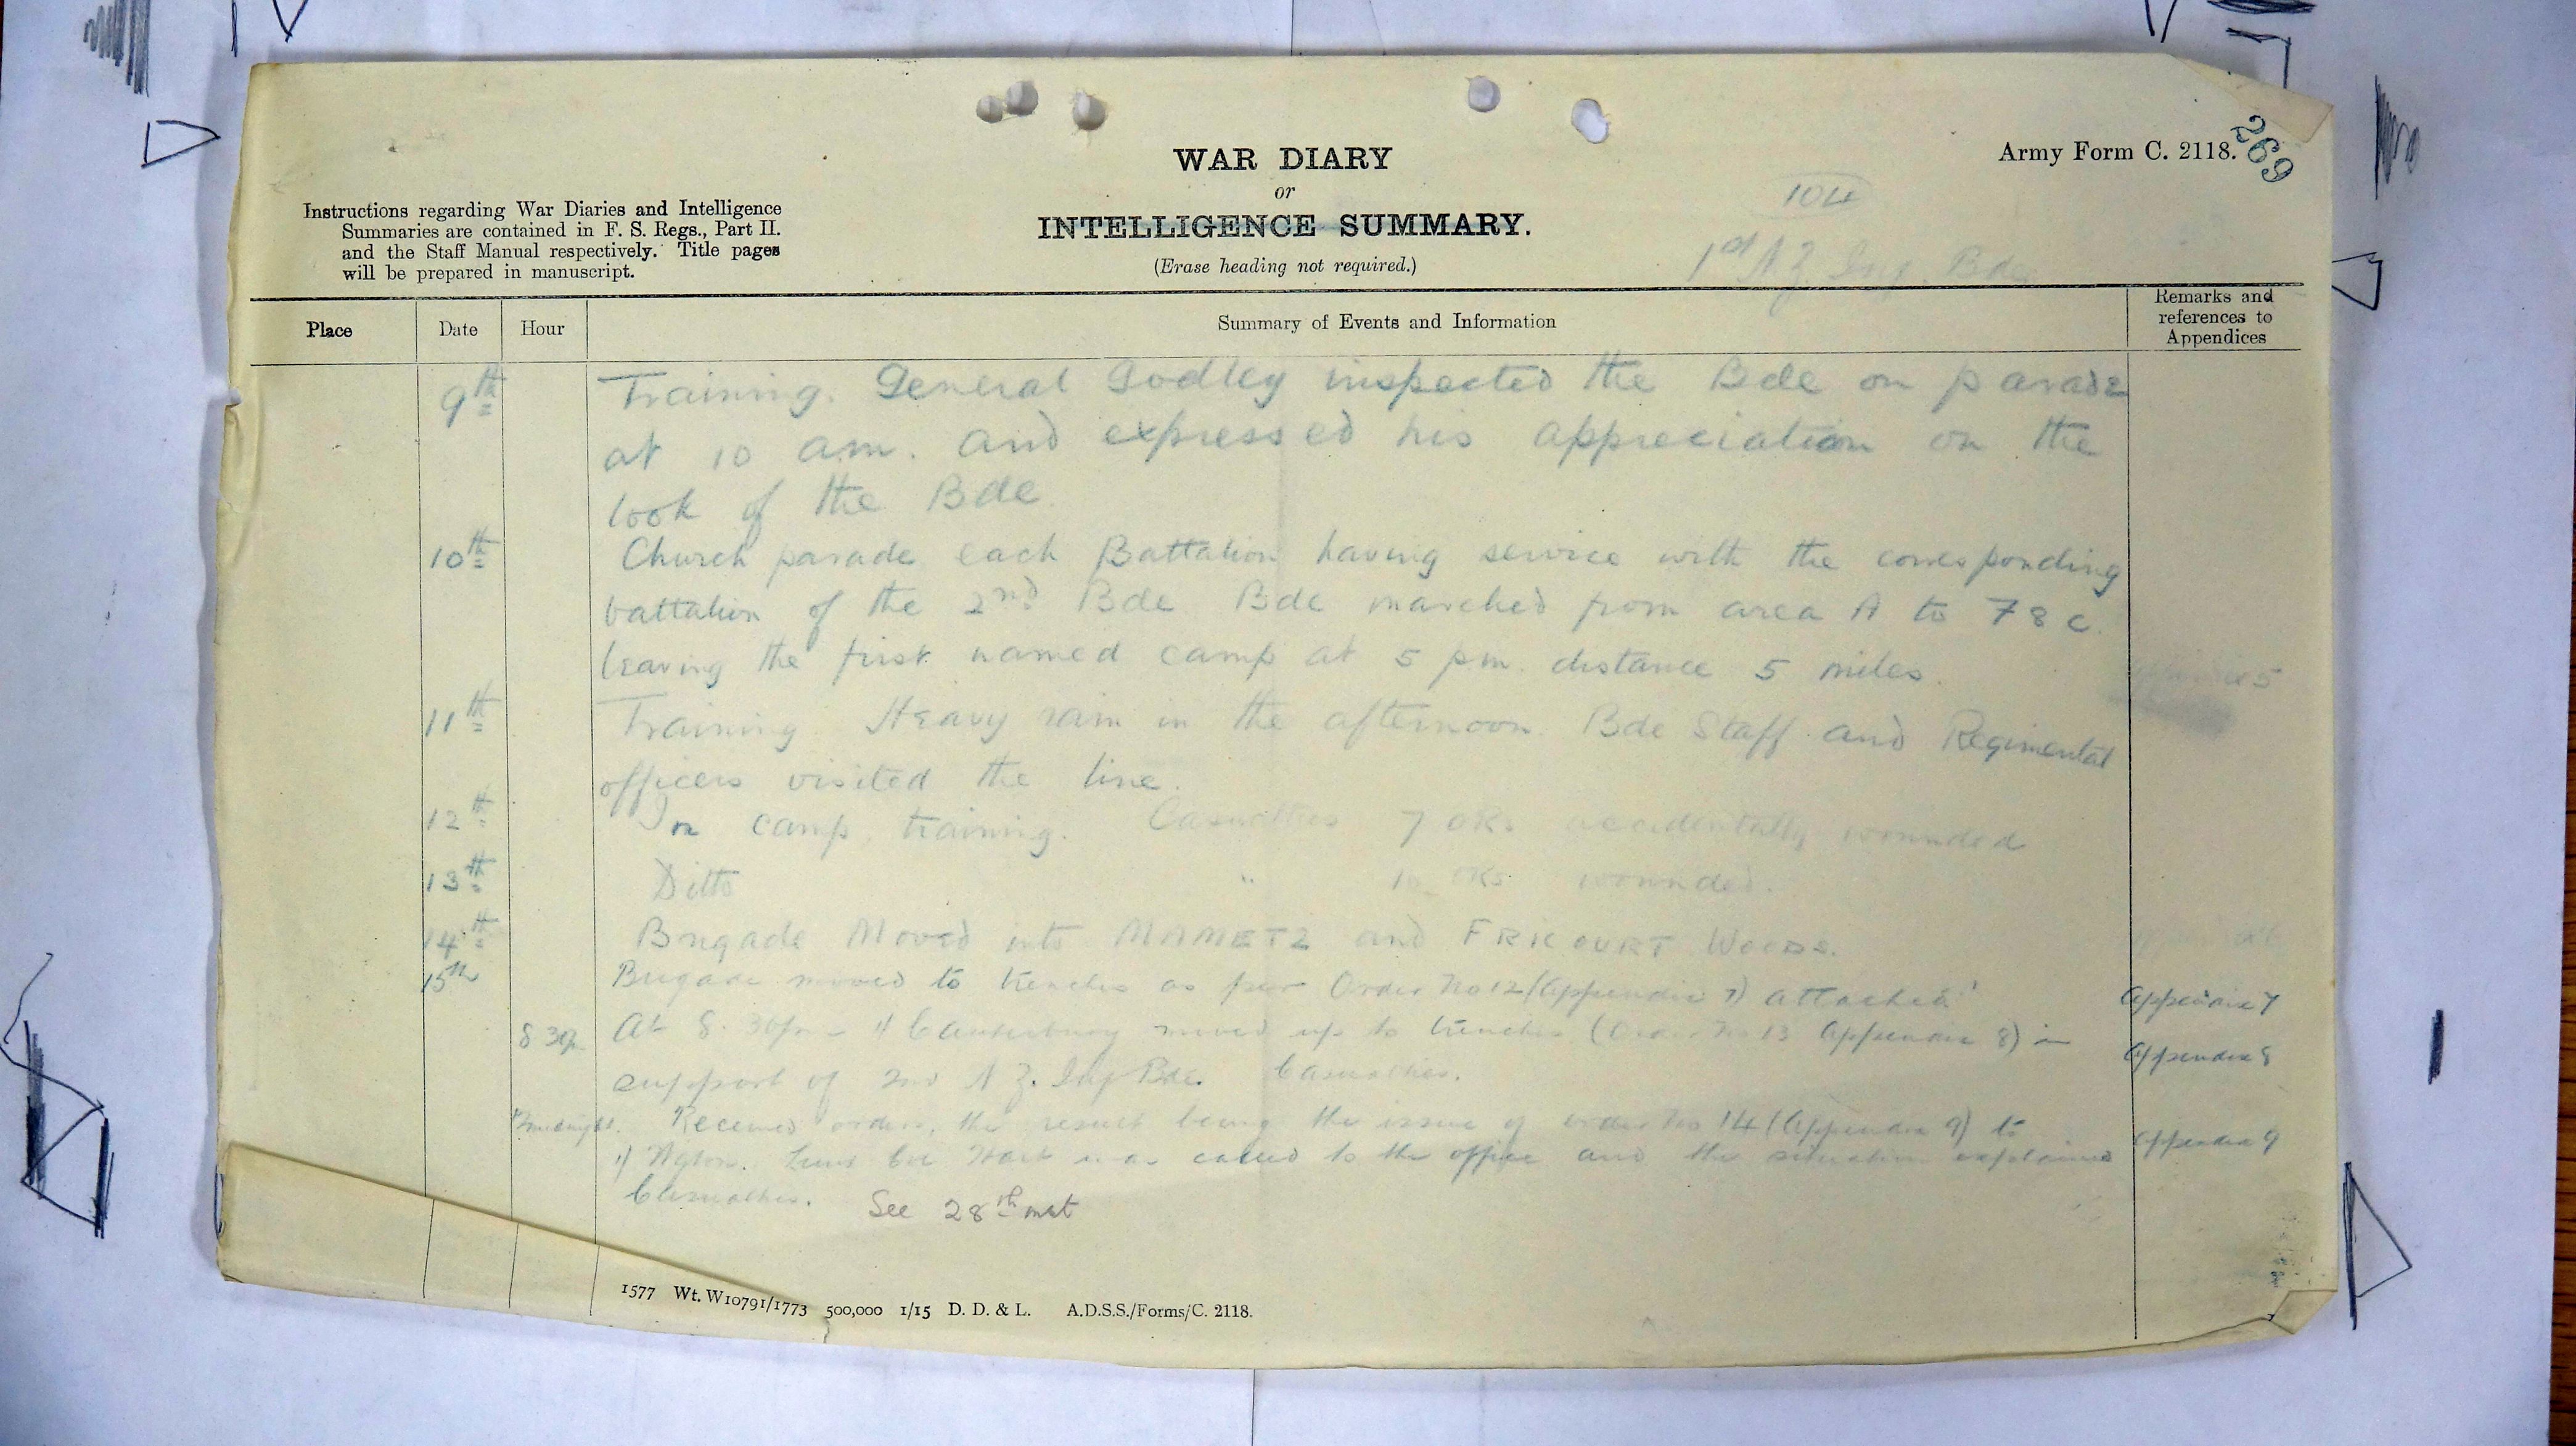 WAR DIARY
or
INTELLIGENCE SUMMARY.
(Erase heading not required.)
Instructions regarding War Diaries and Intelligence
Summaries are contained in F. S. Regs., Part II.
and the Staff Manual respectively. Title pages
will be prepared in manuscript.
Army Form C. 2118.
269
104
1st N Z Inf Bde
Place Date Hour Summary of Events and Information Remarks and references to Appendices
9th Training. General Godley inspected the Bde on parade
at 10 am. and expressed his appreciation on the
look of the Bde
10th Church parade each Battalion having service with the corresponding
battalion of the 2nd Bde Bde marched from area A to 78 c.
leaving the first named camp at 5 pm. distance 5 miles. 5
11th Training Heavy rain in the afternoon. Bde Staff and Regimental
officers visited the line.
12th In camp, training. Casualties 7 ORs accidentally wounded
13th Ditto " ORs wounded.
14th Brigade Moved into MAMETZ and FRICOURT WOODS.
15th Brigade moved to trenches as per Order No 12 (Appendix 7) attached Appendix 7
8 30p. At 8. 30pm 1/ Canterbury moved up to trenches (Order No 13 Appendix 8) in Appendix 8
support of 2nd N Z. Inf Bde. Casualties.
midnight. Received orders, the result being the issue of order No 14 (Appendix 9) to
1/ Wgton. Lieut Col Hart was called to the office and the situation explained Appendix 9
Casualties. See 28th inst
1577 Wt. W10791/1773 500,000 1/15 D. D. & L. A.D.S.S./Forms/C. 2118.